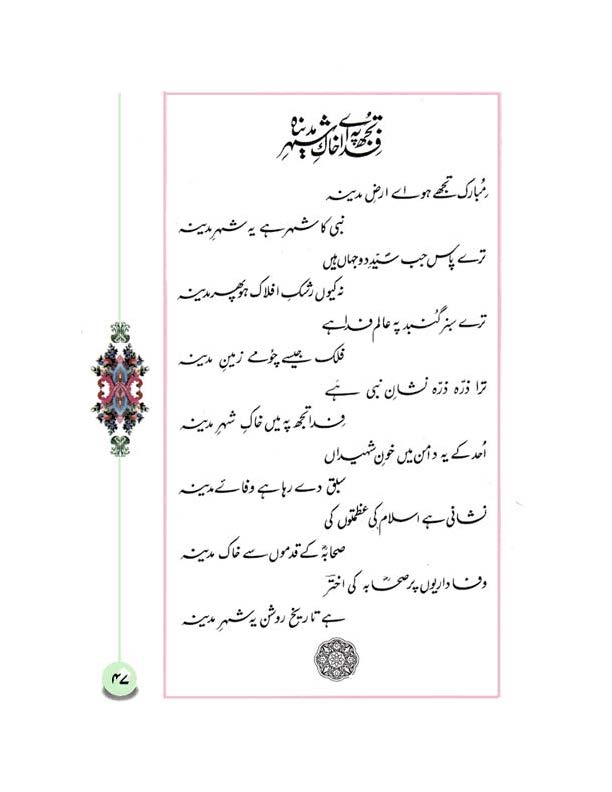 فدا تجھ پہ اے خاکِ شہرِ مدینہ
مُبارک تجھے ہو اے ارضِ مدینہ
نبی کا شہر ہے یہ شہرِ مدینہ
ترے پاس جب سیّدِ دوجہاں ہیں
نہ کیوں رشکِ افلاک ہو پھر مدینہ
ترے سبز گنبد پہ عالم فدا ہے
فلک جیسے چومے زمینِ مدینہ
ترا ذرّہ ذرّہ نشانِ نبی ہے
فدا تجھ پہ میں خاکِ شہرِ مدینہ
اُحد کے یہ دامن میں خونِ شہیداں
سبق دے رہا ہے وفائے مدینہ
نشانی ہے اسلام کی عظمتوں کی
صحابہؓ کے قدموں سے خاک مدینہ
وفاداریوں پر صحابہؓ کی اخترؔ
ہے تاریخ روشن یہ شہرِ مدینہ
۴۷